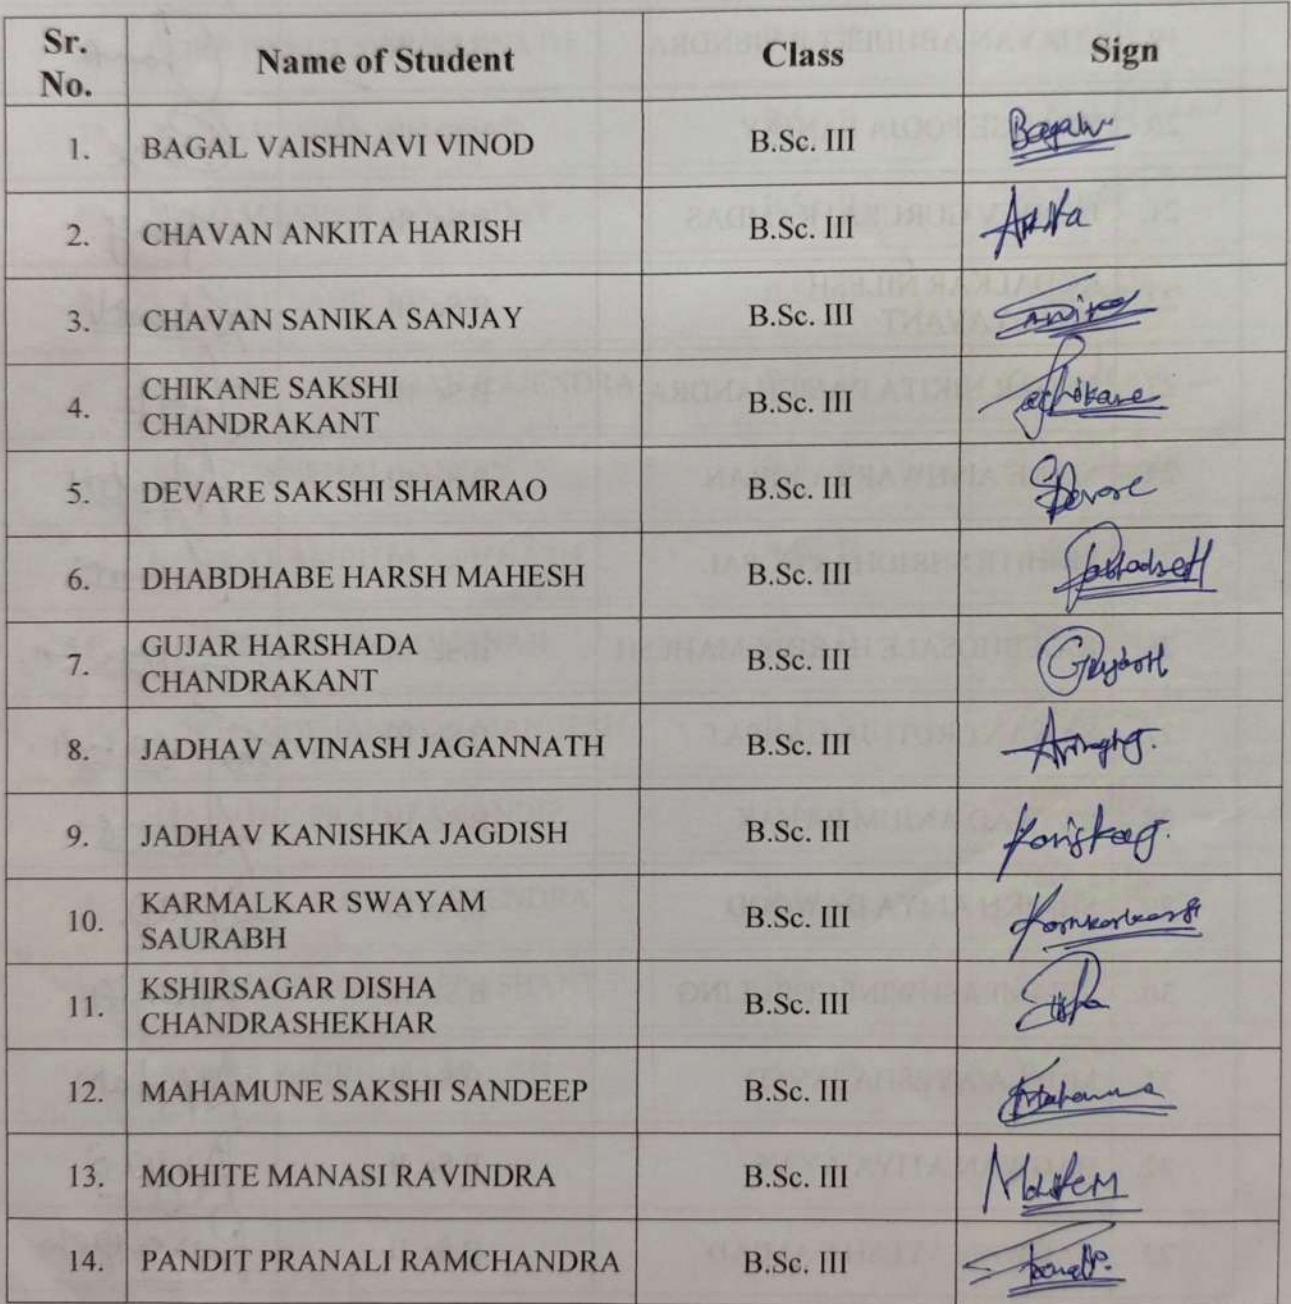 Sr. No. Name of Student Class Sign
1. BAGAL VAISHNAVI VINOD B.Sc. III
2. CHAVAN ANKITA HARISH B.Sc. III
3. CHAVAN SANIKA SANJAY B.Sc. III
4. CHIKANE SAKSHI CHANDRAKANT B.Sc. III
5. DEVARE SAKSHI SHAMRAO B.Sc. III
6. DHABDHABE HARSH MAHESH B.Sc. III
7. GUJAR HARSHADA CHANDRAKANT B.Sc. III
8. JADHAV AVINASH JAGANNATH B.Sc. III
9. JADHAV KANISHKA JAGDISH B.Sc. III
10. KARMALKAR SWAYAM SAURABH B.Sc. III
11. KSHIRSAGAR DISHA CHANDRASHEKHAR B.Sc. III
12. MAHAMUNE SAKSHI SANDEEP B.Sc. III
13. MOHITE MANASI RAVINDRA B.Sc. III
14. PANDIT PRANALI RAMCHANDRA B.Sc. III